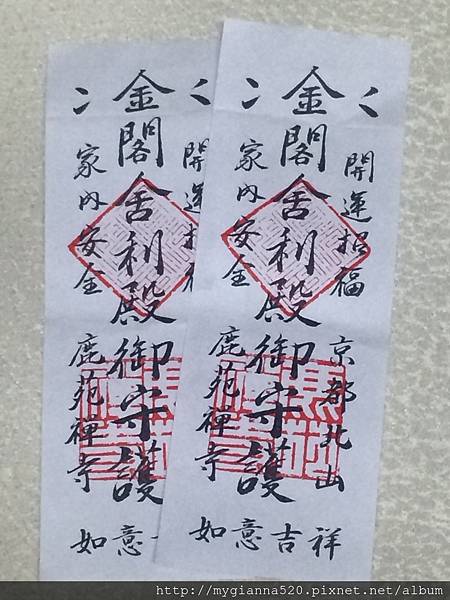 開運招福
京都北山
金閣舍利殿御守護
家内安全
鹿苑禪寺
如意吉祥
開運招
金閣舍利殿御守護
家内安全
鹿苑禪寺
如意
http://mygianna520.pixnet.net/album